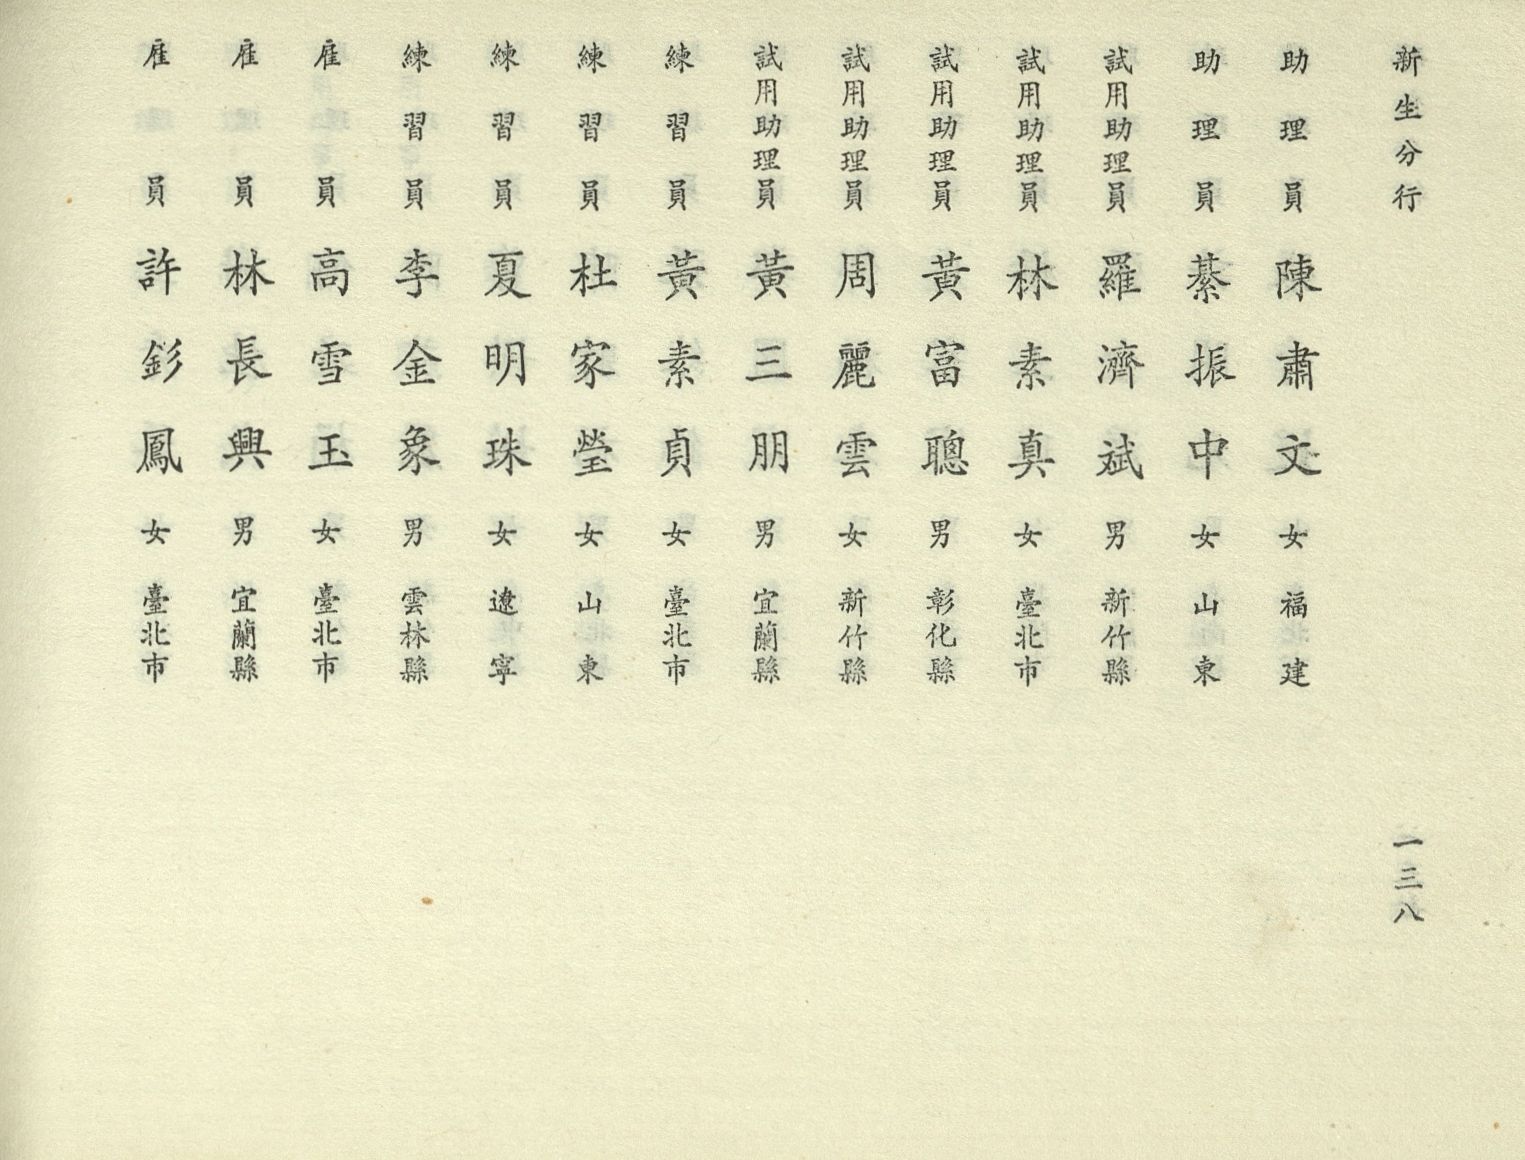 新生分行 一三八
助理員 陳肅文 女 福建
助理員 綦振中 女 山東
試用助理員 羅濟斌 男 新竹縣
試用助理員 林素真 女 臺北市
試用助理員 黃富聰 男 彰化縣
試用助理員 周麗雲 女 新竹縣
試用助理員 黃三朋 男 宜蘭縣
練習員 黃素貞 女 臺北市
練習員 杜家瑩 女 山東
練習員 夏明珠 女 遼寧
練習員 李金象 男 雲林縣
雇員 高雪玉 女 臺北市
雇員 林長興 男 宜蘭縣
雇員 許釤鳳 女 臺北市